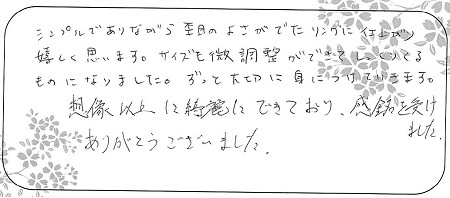 シンプルでありながら杢目のよさがでたリングに仕上がり
嬉しく思います。サイズも微調整ができてしっくりくる
ものになりました。ずっと大切に身につけていきます。
想像以上に綺麗にできており、感銘を受け
ました。
ありがとうございました。